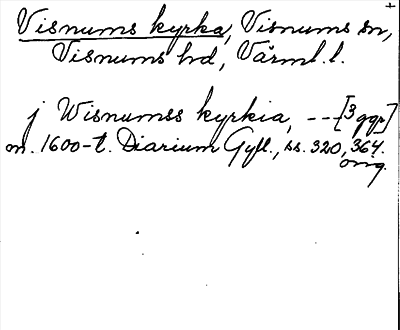 Visnums kyrka, Visnums sn,
Visnums hd, Värml. l.
j Wisnumss kyrkia, --- [3 ggr]
m. 1600-t. Diarium Gyll., ss. 320, 364.
orig.